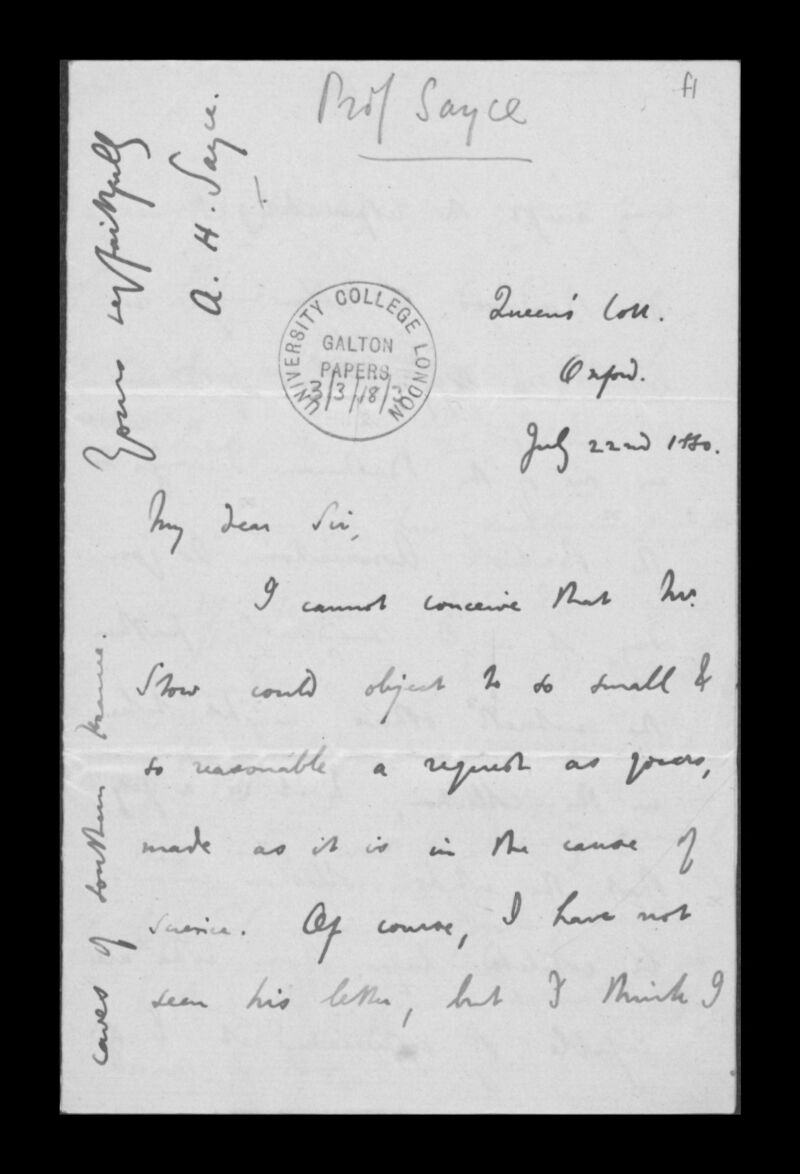 Prof Sayce
f1
Queen's Coll.
Oxford.
July 22nd 1880.
UNIVERSITY COLLEGE LONDON
GALTON
PAPERS
3/3/18/
My dear Sir,
I cannot conceive that Mr.
Stow could object to so small &
so reasonable a request as yours,
made as it is in the cause of
science. Of course, I have not
seen his letter, but I think I
caves of southern France.
Yours very faithfully
A. H. Sayce.